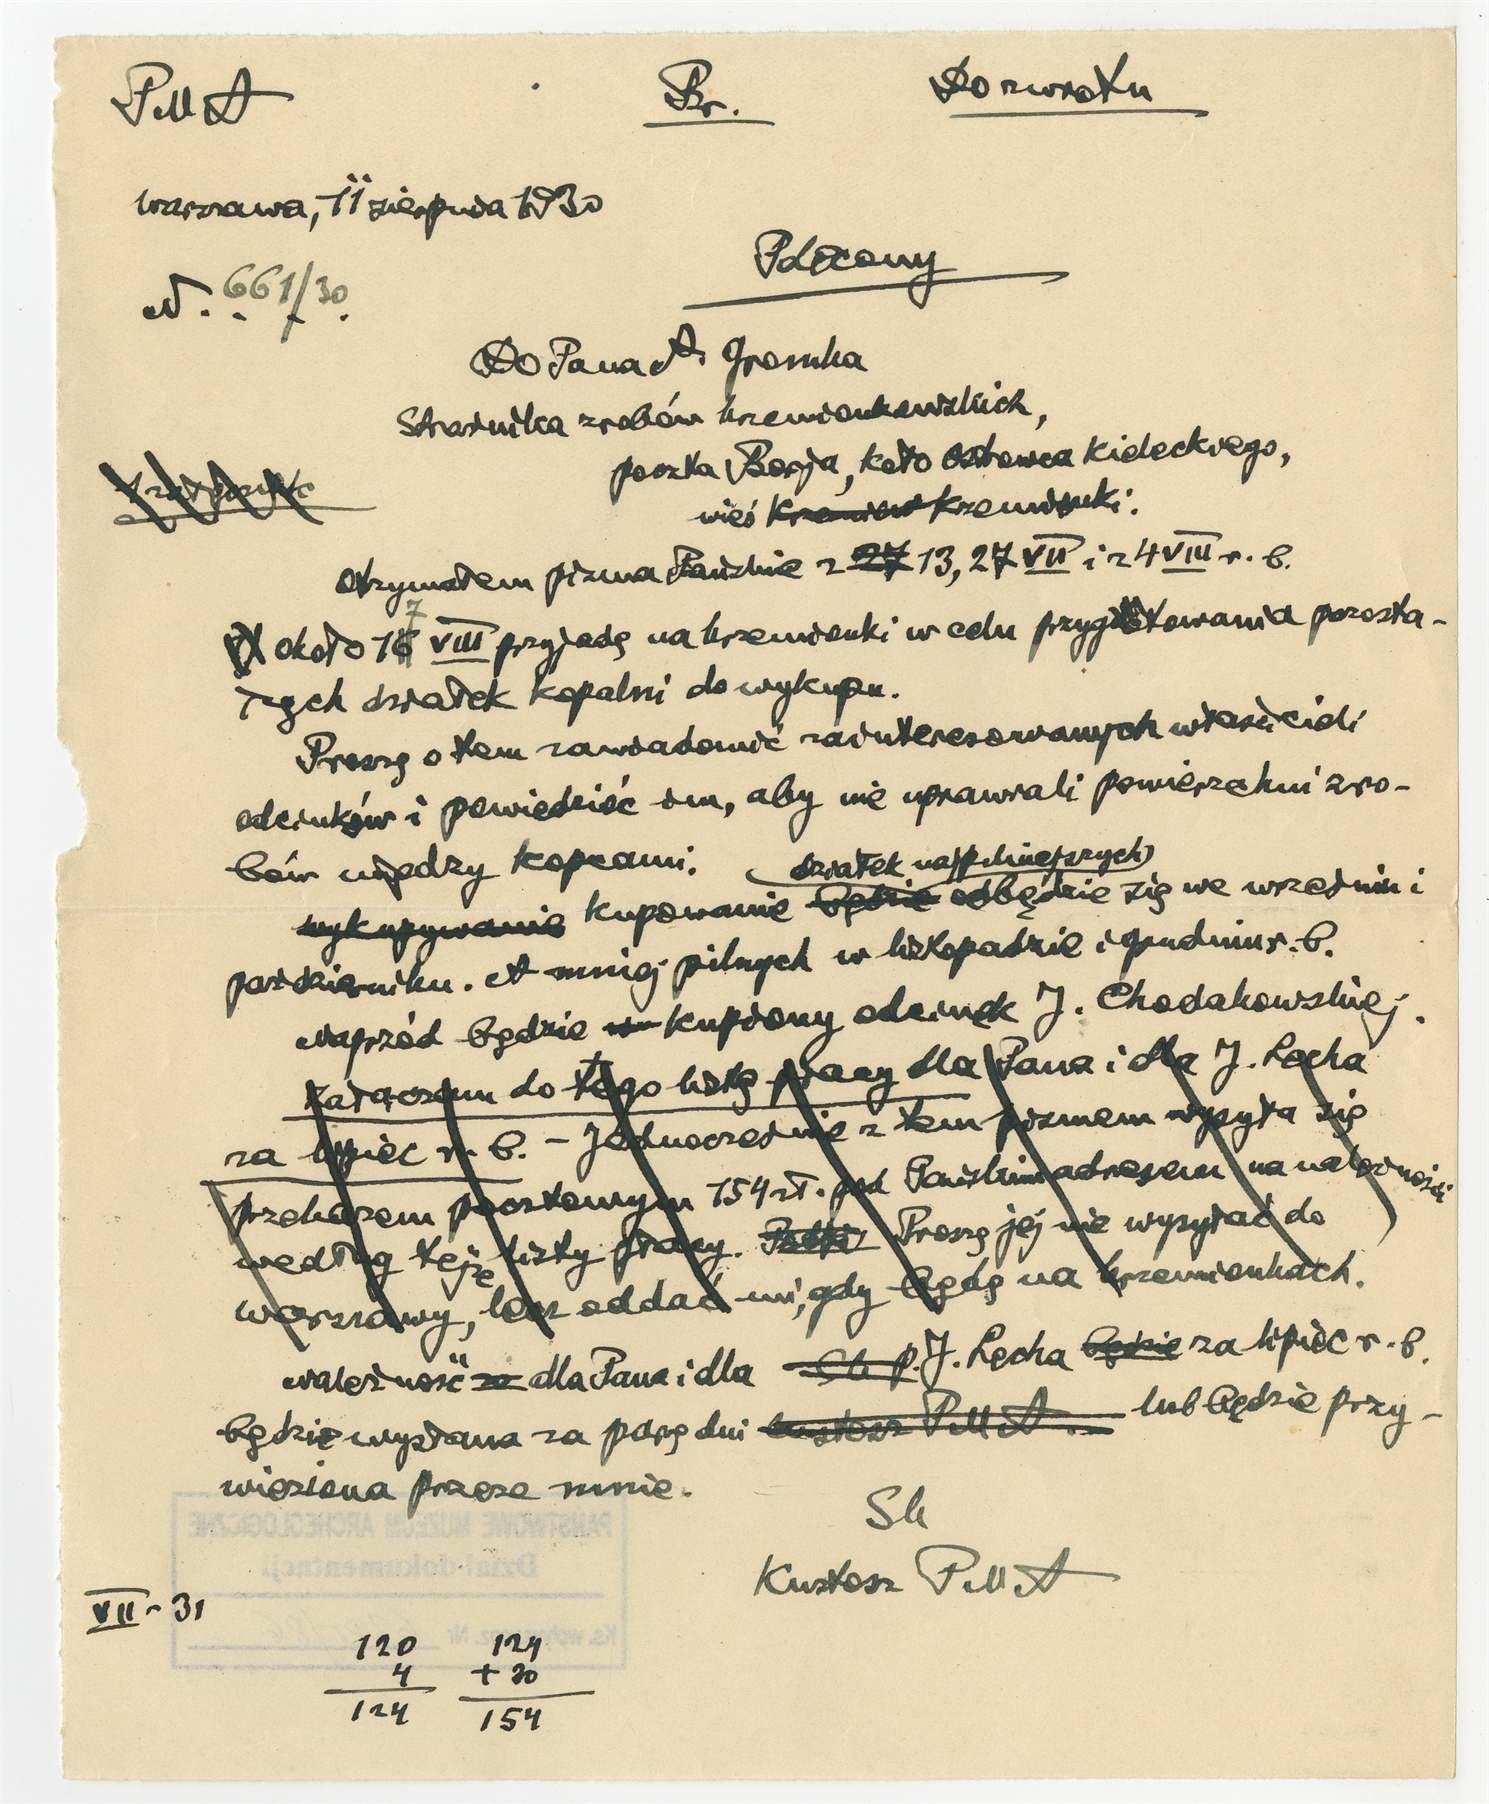 PMA Br. Do zwrotu
Warszawa, 11 sierpnia 1930
N. 661/30.
Polecony
Do Pana A. Gromka
Strażnika zrobów krzemionkowskich,
poczta Borja, koło Ostrowca Kieleckiego,
wieś Krzemion Krzemionki.
Otrzymałem pisma Pańskie z 27 13, 27 VII i z 4 VIII r. b.
około 17 VIII przyjadę na Krzemionki w celu przygotowania pozosta-
łych działek kopalni do wykupu.
Proszę o tem zawiadomić zainteresowanych właścicieli
odcinków i powiedzieć im, aby nie uprawiali powierzchni zro-
bów między kopcami.
działek najpilniejszych
Wykupywanie Kupowanie będzie odbędzie się we wrześniu i
październiku. A mniej pilnych w listopadzie i grudniu r. b.
Naprzód będzie kupiony odcinek J. Chodakowskiej.
Załączam do tego listę płacy dla Pana i dla J. Lecha
za lipiec r. b. – Jednocześnie z tem pismem wysyła się
przekazem pocztowym 154 zł. pod Pańskim adresem na należności
według tejże listy płacy. Proszę jej nie wysyłać do
Warszawy, lecz oddać mi, gdy będę na Krzemionkach.
Należność za dla Pana i dla p. J. Lecha będzie za lipiec r. b.
będzie wysłana za parę dni Kustosz PMA lub będzie przy-
wieziona przeze mnie.
Sk
Kustosz PMA
PAŃSTWOWE MUZEUM ARCHEOLOGICZNE
Dział dokumentacji
VII - 31
120 124
4 + 30
124 154